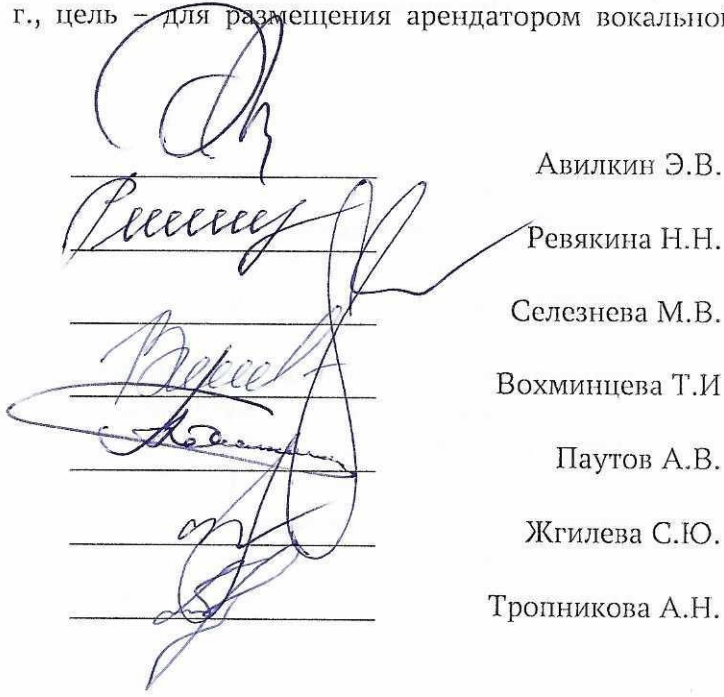 г., цель – для размещения арендатором
Авилкин Э.В.
Ревякина Н.Н.
Селезнева М.В.
Вохминцева Т.И
Паутов А.В.
Жгилева С.Ю.
Тропникова А.Н.